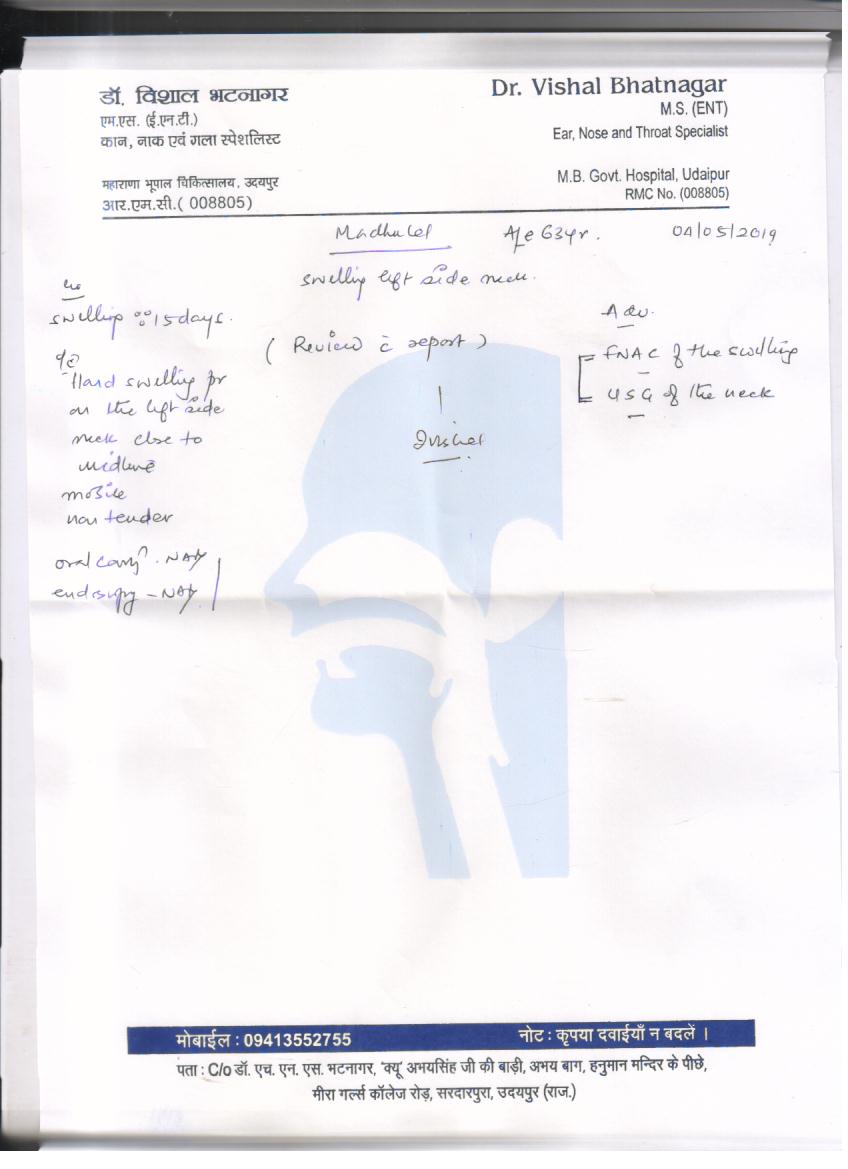 डॉ. विशाल भटनागर
एम.एस. (ई.एन.टी.)
कान, नाक एवं गला स्पेशलिस्ट
महाराणा भूपाल चिकित्सालय, उदयपुर
आर.एम.सी.( 008805)
Dr. Vishal Bhatnagar
M.S. (ENT)
Ear, Nose and Throat Specialist
M.B. Govt. Hospital, Udaipur
RMC No. (008805)
Madhulal A/e 63yr. 04/05/2019
swelling left side neck.
swelling 15 days.
(Review c̄ report)
Hard swelling pr
on the left side
neck close to
midline
mobile
non tender
oral cavity - NAD
endoscopy - NAD
Adv.
FNAC of the swelling
USG of the neck
मोबाईल : 09413552755
नोट : कृपया दवाईयाँ न बदलें ।
पता : C/o डॉ. एच. एन. एस. भटनागर, 'क्यू' अभयसिंह जी की बाड़ी, अभय बाग, हनुमान मन्दिर के पीछे,
मीरा गर्ल्स कॉलेज रोड़, सरदारपुरा, उदयपुर (राज.)